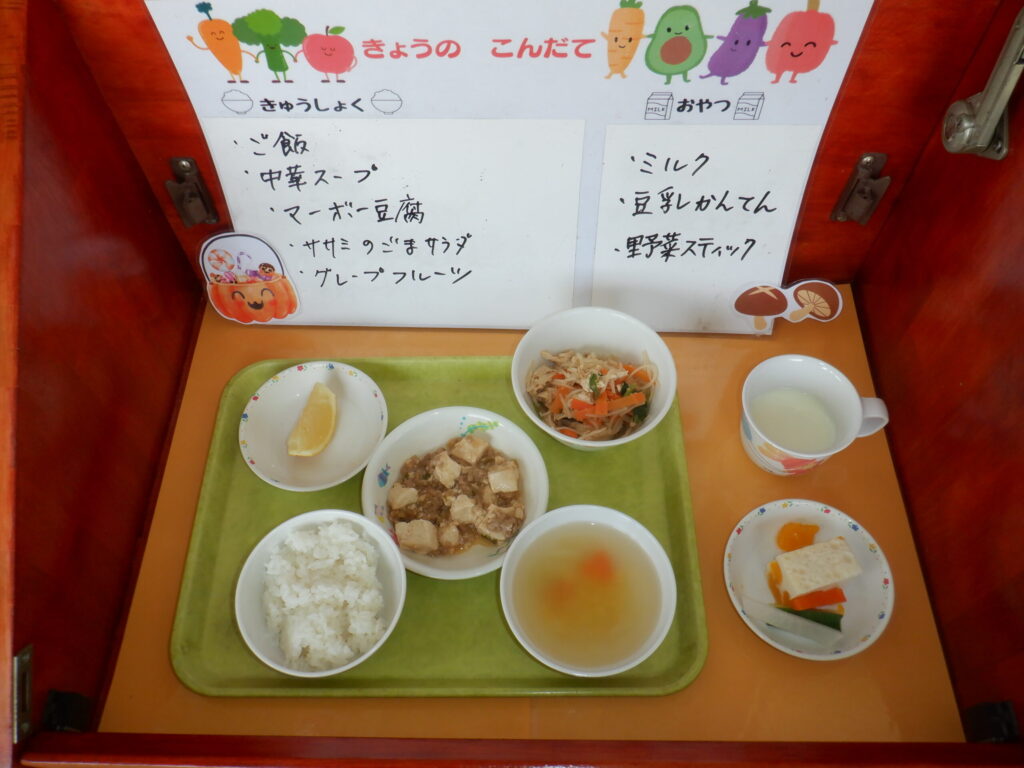 きょうの こんだて
きゅうしょく
・ご飯
・中華スープ
・マーボー豆腐
・ササミのごまサラダ
・グレープフルーツ
MILK おやつ MILK
・ミルク
・豆乳かんてん
・野菜スティック